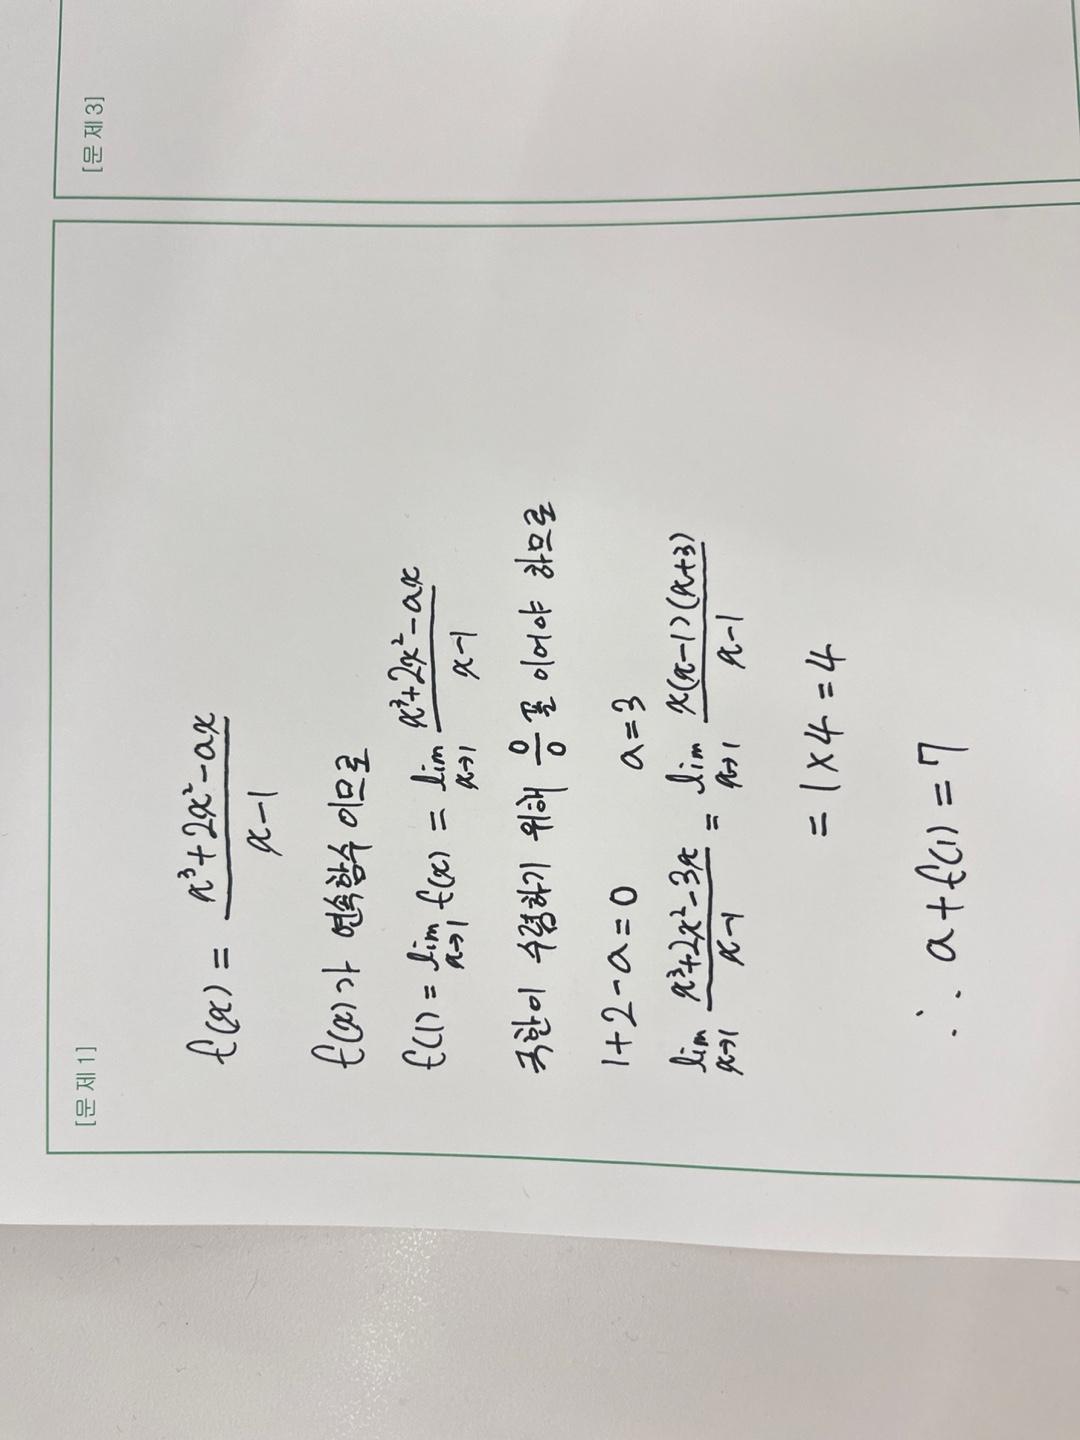 [문 제 1]
f(x) = \frac{x³+2x²-ax}{x-1}
f(x)가 연속함수 이므로
f(1) = \lim_{x→1} f(x) = \lim_{x→1} \frac{x³+2x²-ax}{x-1}
극한이 수렴하기 위해 \frac{0}{0} 꼴 이어야 하므로
1+2-a=0 a=3
\lim_{x→1} \frac{x³+2x²-3x}{x-1} = \lim_{x→1} \frac{x(x-1)(x+3)}{x-1}
= 1×4=4
∴ a+f(1)=7
[문 제 3]